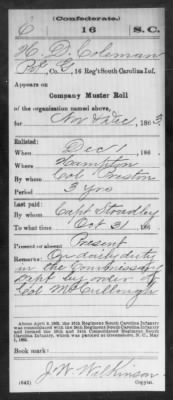 (Confederate.)
C 16 S.C.
H. D. Coleman
Pvt, Co. G, 16 Reg't South Carolina Inf.
Appears on
Company Muster Roll
of the organization named above,
for Nov & Dec, 1863.
Enlisted:
When Dec 1, 186 .
Where Hampton
By whom Col Preston
Period 3 yrs
Last paid:
By whom Capt Stradley
To what time Oct 31, 186 .
Present or absent Present
Remarks: On daily duty
in the Commissary
Dept by order of
Col McCullough
About April 9, 1865, the 16th Regiment South Carolina Infantry
was consolidated with the 24th Regiment South Carolina Infantry
and formed the 16th and 24th Consolidated Regiment South Carolina
Infantry, which was paroled at Greensboro, N. C., May
1, 1865.
Book mark:
J. W. Wilkinson
(642) Copyist.